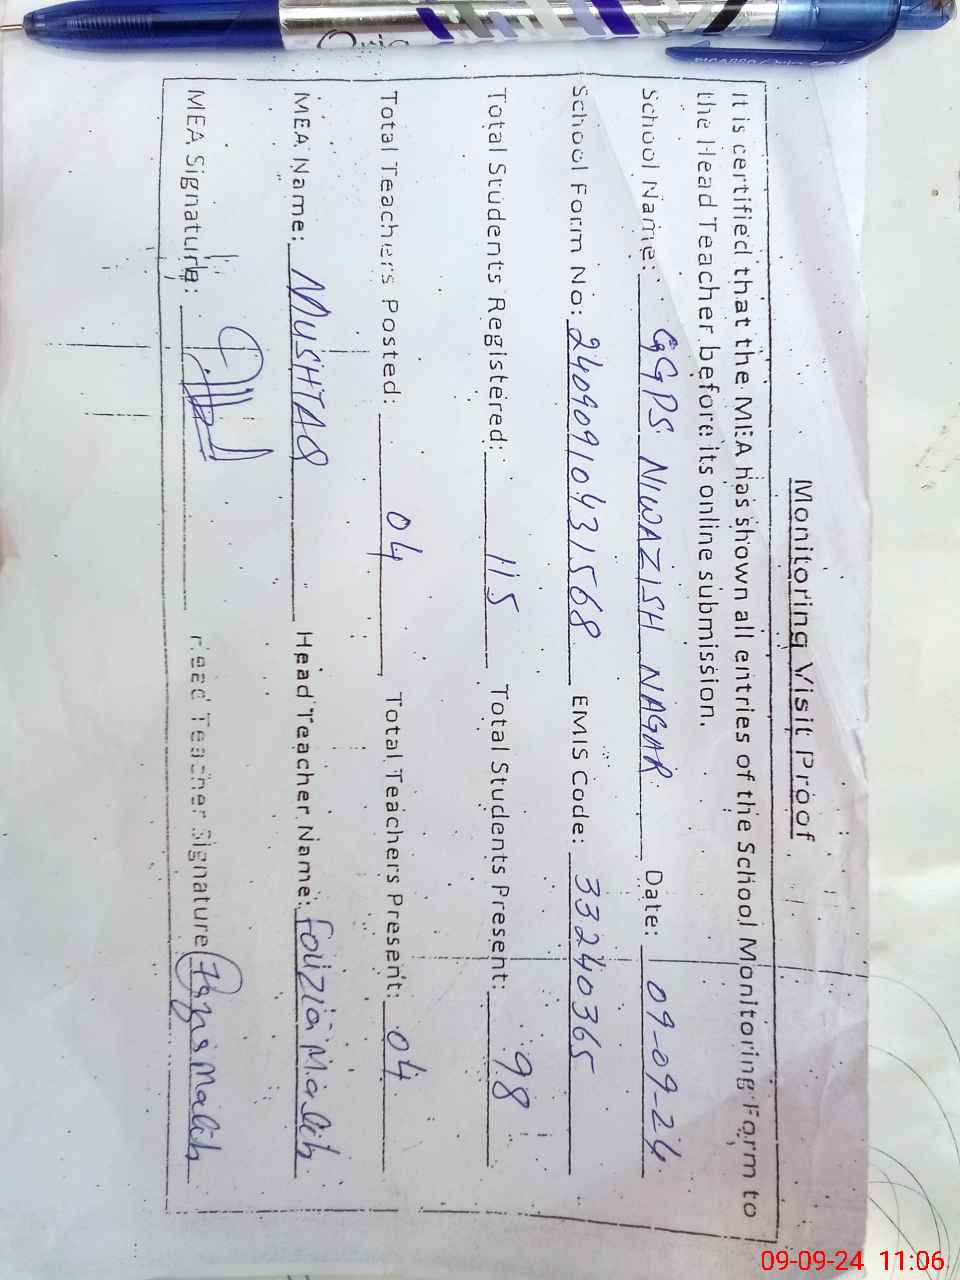 Monitoring Visit Proof
It is certified that the MEA has shown all entries of the School Monitoring Form to
the Head Teacher before its online submission.
School Name: GGPS NIWAZISH NAGAR Date: 09-09-24
School Form No: 24090910431568 EMIS Code: 33240365
Total Students Registered: 115 Total Students Present: 98
Total Teachers Posted: 04 Total Teachers Present: 04
MEA Name: MUSHTAQ Head Teacher Name: Fouzia Malik
MEA Signature: Head Teacher Signature Malik
09-09-24 11:06